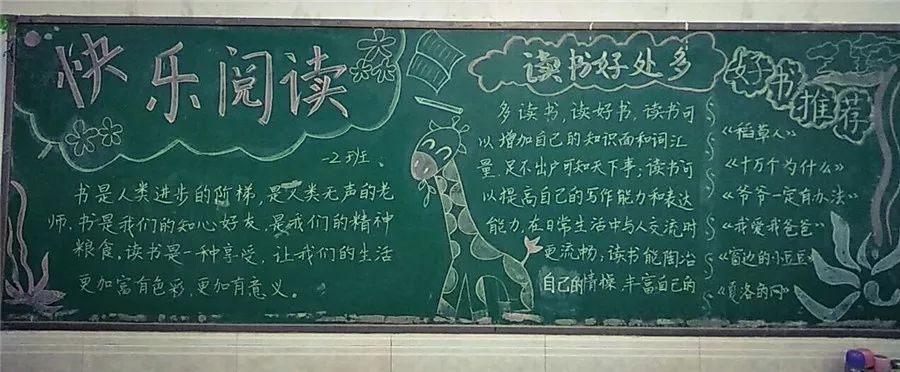 快乐阅读
一2班、
书是人类进步的阶梯,是人类无声的老
师.书是我们的知心好友,是我们的精神
粮食,读书是一种享受,让我们的生活
更加富有色彩,更加有意义。
读书好处多
多读书,读好书,读书可
以增加自己的知识面和词汇
量,足不出户可知天下事;读书可
以提高自己的写作能力和表达
能力,在日常生活中与人交流时
更流畅;读书能陶冶
自己的情操,丰富自己的
好书推荐
《稻草人》
《十万个为什么》
《爷爷一定有办法》
《我爱我爸爸》
《窗边的小豆豆》
《夏洛的网》